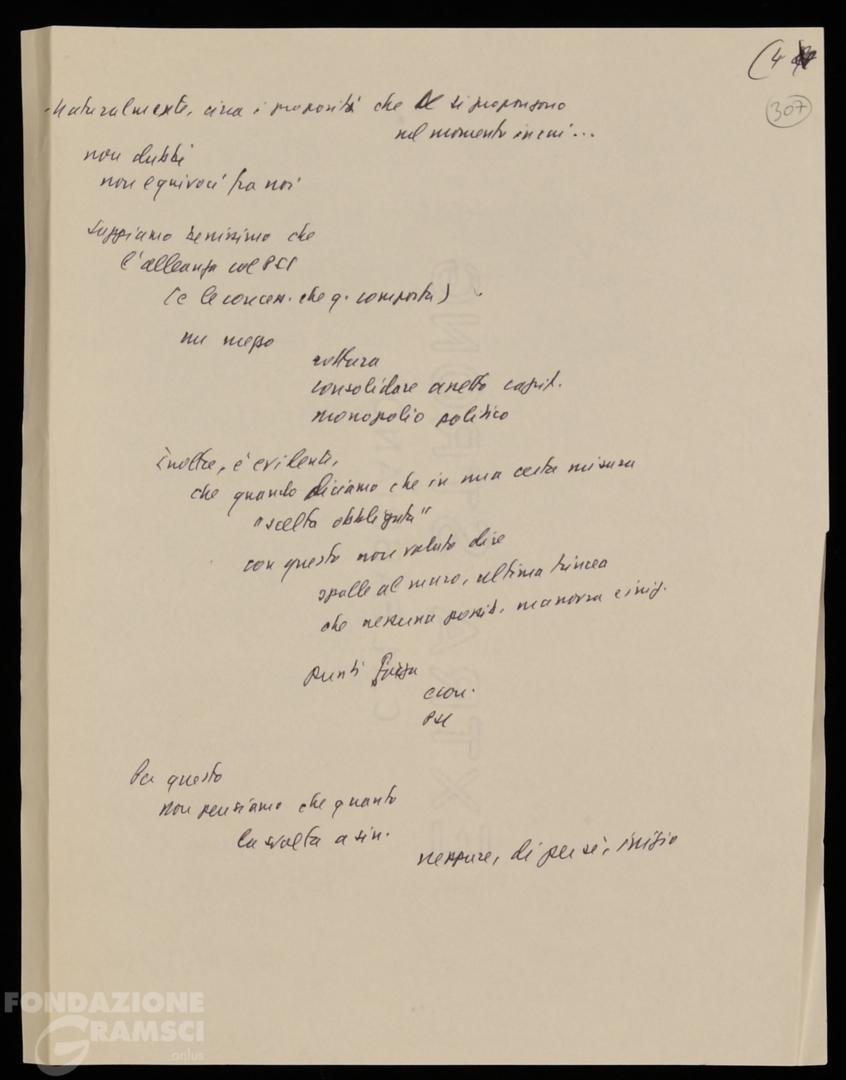 (4
307
Naturalmente, circa i propositi che si propongono
nel momento in cui...
non dubbi
non equivoci fra noi
Sappiamo benissimo che
l'alleanza col PSI
(e le concess. che q. comporta)
un mezzo
rottura
consolidare assetto capit.
monopolio politico
Inoltre, è evidente,
che quando diciamo che in una certa misura
"scelta obbligata"
con questo non voluto dire
spalle al muro, ultima trincea
che nessuna possib. manovra e iniz.
punti forza
econ.
Per questo
non pensiamo che quanto
la svolta a sin.
neppure, di per sé, inizio
FONDAZIONE
GRAMSCI
onlus